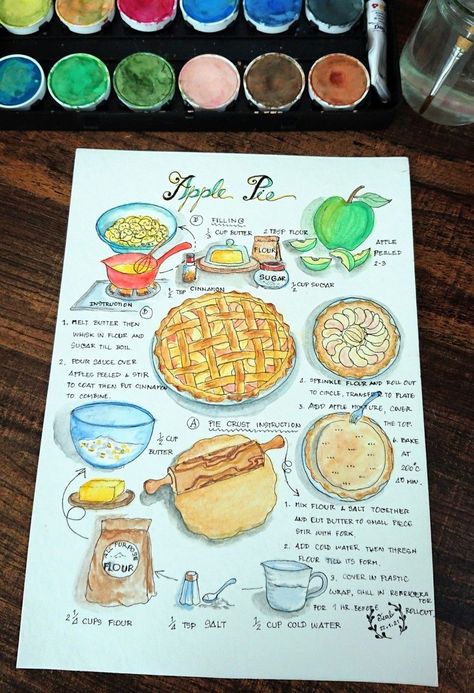 Apple Pie
B FILLING
1/3 CUP BUTTER
2 TBSP FLOUR
FLOUR
SUGAR
APPLE
PEELED
2-3
1/2 TSP CINNAMON
1/2 CUP SUGAR
INSTRUCTION B
1. MELT BUTTER THEN
WHISK IN FLOUR AND
SUGAR TILL BOIL.
2. POUR SAUCE OVER
APPLES PEELED & STIR
TO COAT THEN PUT CINNAMON
TO COMBINE.
4. SPRINKLE FLOUR AND ROLL OUT
TO CIRCLE, TRANSFER TO PLATE
5. ADD APPLE MIXTURE, COVER
THE TOP.
6. BAKE
AT
200°C
40 MIN.
A PIE CRUST INSTRUCTION
1/2 CUP
BUTTER
1. MIX FLOUR & SALT TOGETHER
AND CUT BUTTER TO SMALL PIECE
STIR WITH FORK.
2. ADD COLD WATER THEM
FLOUR ITS FORM.
3. COVER IN PLASTIC
WRAP, CHILL IN
FOR 1 HR. BEFORE ROLLOUT
ALL-PURPOSE
FLOUR
2 1/4 CUPS FLOUR
1/4 TSP SALT
1/2 CUP COLD WATER